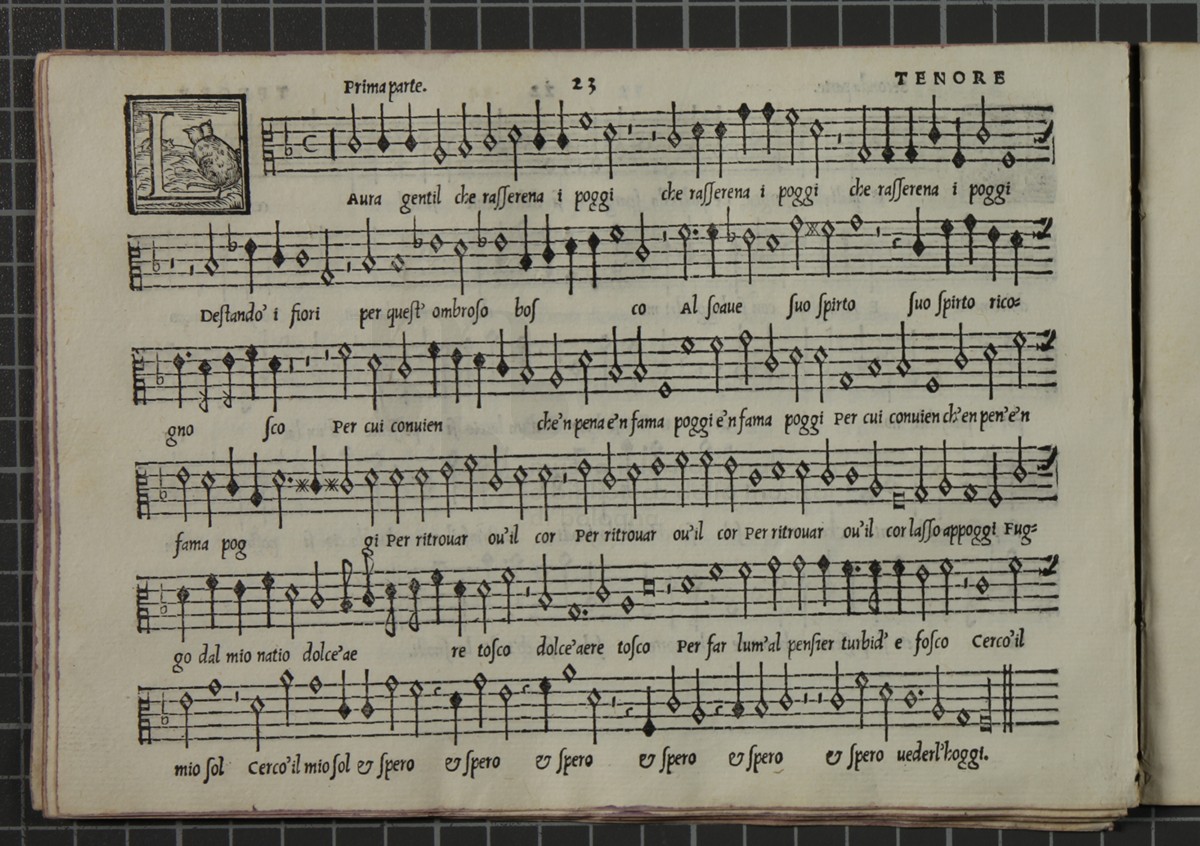 Prima parte. 23 TENORE
L Aura gentil che raſſerena i poggi che raſſerena i poggi che raſſerena i poggi
Deſtando' i fiori per queſt' ombroſo boſ co Al ſoaue ſuo ſpirto ſuo ſpirto rico=
gno ſco Per cui conuien che'n pena e'n fama poggi e'n fama poggi Per cui conuien ch'en pen'e'n
fama pog gi Per ritrouar ou'il cor Per ritrouar ou'il cor Per ritrouar ou'il cor laſſo appoggi Fug=
go dal mio natio dolce'ae re toſco dolce'aere toſco Per far lum'al penſier turbid' e foſco Cerco'il
mio ſol Cerco'il mio ſol & ſpero & ſpero & ſpero & ſpero & ſpero & ſpero uederl'hoggi.